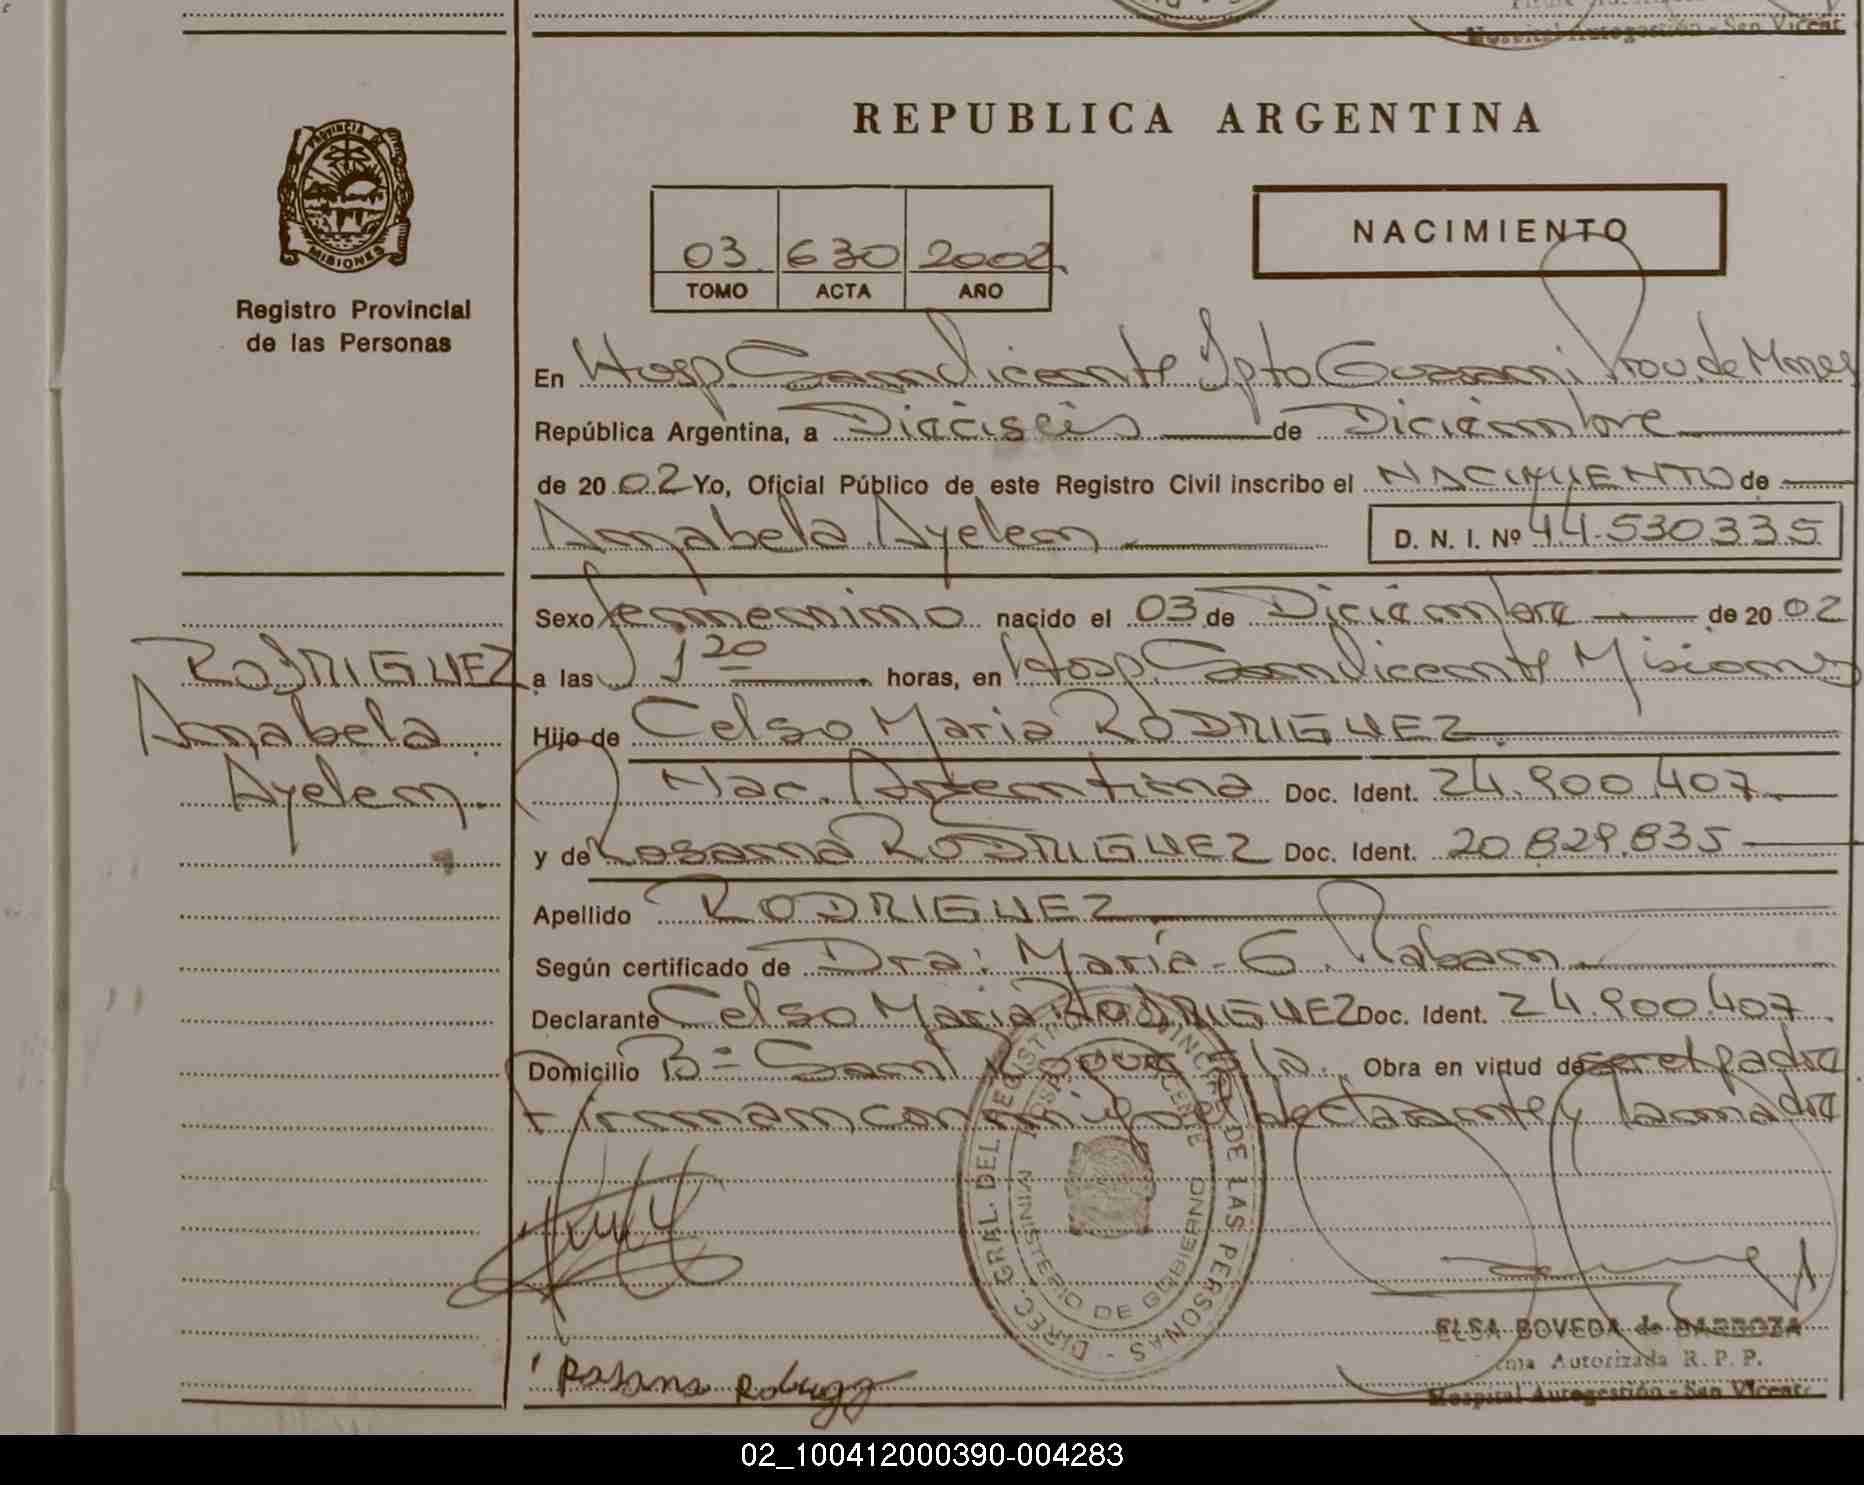 Hospital Autogestión - San Vicent
REPUBLICA ARGENTINA
PROVINCIA DE MISIONES
Registro Provincial
de las Personas
03 630 2002
TOMO ACTA AÑO
NACIMIENTO
En Hosp. San Vicente Dpto Guarani Prov. de Mnes
República Argentina, a Dieciseis de Diciembre
de 2002 Yo, Oficial Público de este Registro Civil inscribo el NACIMIENTO de
Annabela Ayelen D. N. I. Nº 44.530.335
Sexo femenino nacido el 03 de Diciembre de 2002
a las 1 20 horas, en Hosp. San Vicente Misiones
Hijo de Celso Maria RODRIGUEZ
Nac. Argentina Doc. Ident. 24.900.407
y de Rosana RODRIGUEZ Doc. Ident. 20.829.835
Apellido RODRIGUEZ
Según certificado de Dra: María G. Raban
Declarante Celso Maria RODRIGUEZ Doc. Ident. 24.900.407
Domicilio Bº San Roque S/n. Obra en virtud de ser el padre
Firman conmigo el declarante y la madre
RODRIGUEZ
Annabela
Ayelen.
DIREC. GRAL. DEL REGISTRO PROVINCIAL DE LAS PERSONAS
MINISTERIO DE GOBIERNO
Rosana Rodriguez
ELSA BOVEDA de BARBOZA
Firma Autorizada R. P. P.
Hospital Autogestión - San Vicent
02_100412000390-004283